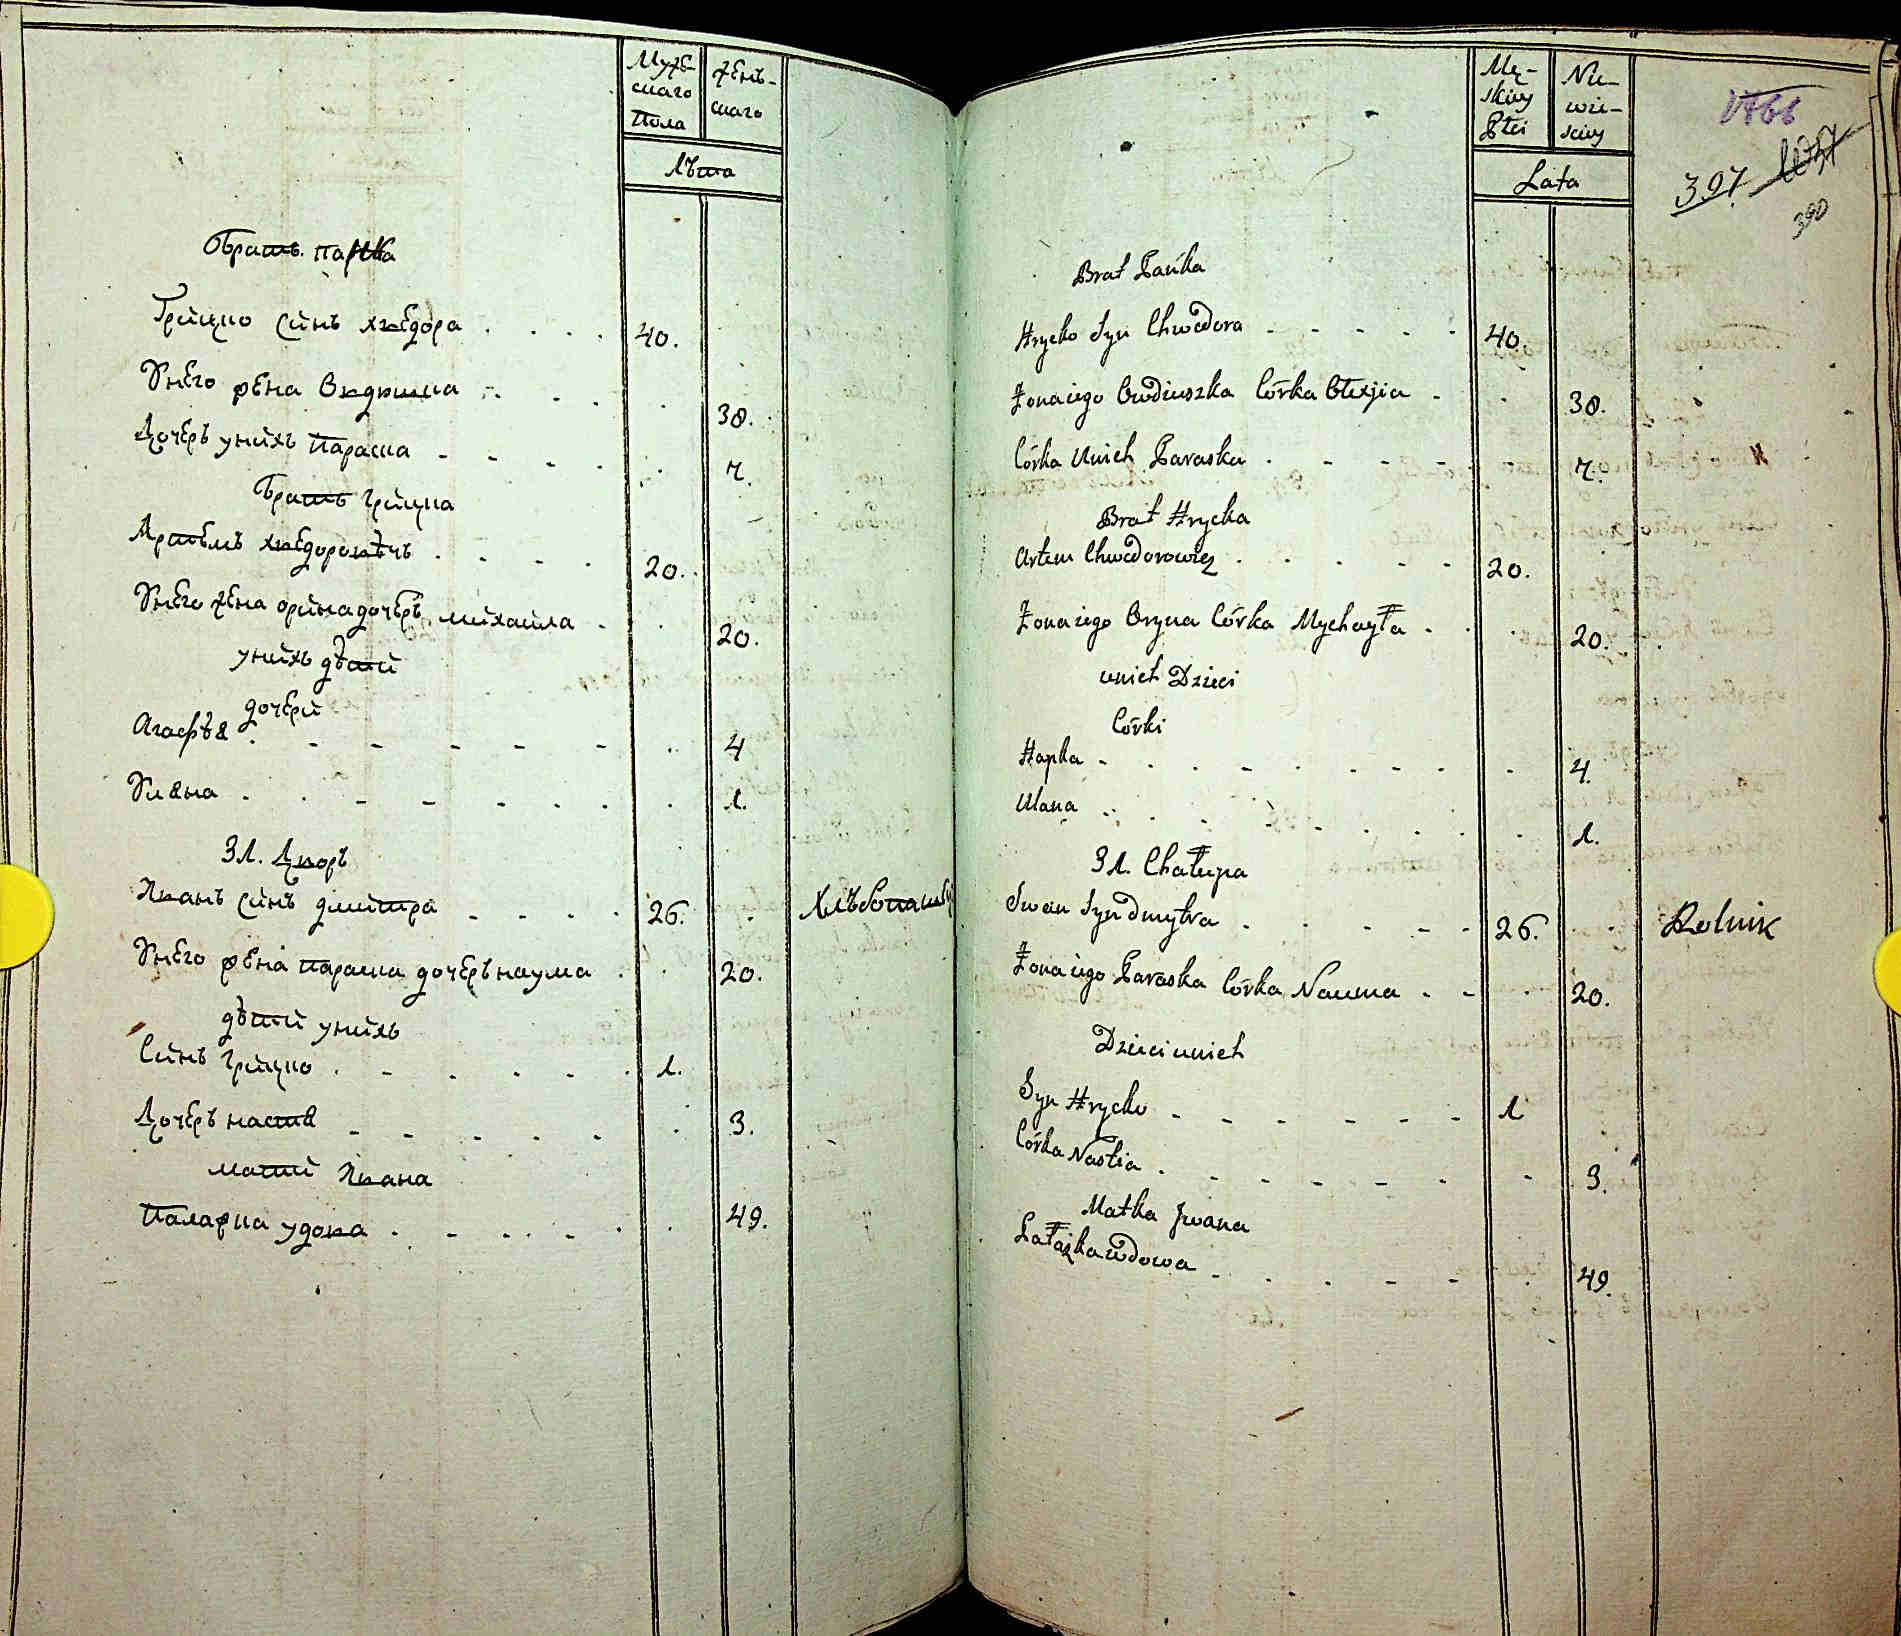 Мужескаго Пола
Женъскаго
Лѣта
Братъ Павка
Грицко синъ хведора 40.
Унего жена Овдюшка 30.
Дочеръ унихъ Параска 7.
Братъ Грицка
Артемъ хведоровѣчъ 20.
Унего жена орина дочеръ михаила 20.
унихъ дѣти
дочери
Агафѣя 4
Уляна 1.
31. Дворъ
Иванъ синъ дмитра 26. Хлѣбопашецъ
Унего жена Параска дочеръ наума 20.
дѣти унихъ
Синъ Грицко 1.
Дочеръ настя 3.
мати Ивана
Палажка удова 49.
Mę-
skiey
Płci
Nie-
wie-
sciey
Lata
397
390
Brat Pawka
Hrycko Syn Chwedora 40.
Żona iego Owdiuszka Córka Olexjia 30.
Córka Unich Paraska 7.
Brat Hrycka
Artem Chwedorowicz 20.
Żona iego Oryna Córka Mychayła 20.
unich Dzieci
Córki
Hapka 4.
Ulana 1.
31. Chałupa
Iwan Syn dmytra 26. Rolnik
Żona iego Paraska Córka Nauma 20.
Dzieci unich
Syn Hrycko 1
Córka Nastia 3.
Matka Iwana
Pałażka wdowa 49.